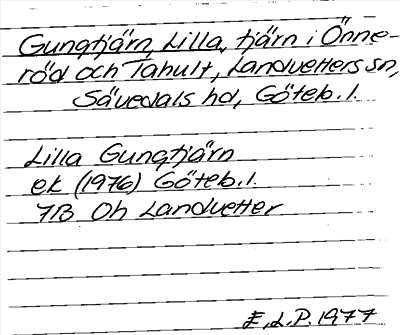 Gungtjärn, Lilla, tjärn i Önne-
röd och Tahult, Landvetters sn,
Sävedals hd, Göteb. l.
Lilla Gungtjärn
ek (1976) Göteb. l.
7B Oh Landvetter
E.L.P. 1977